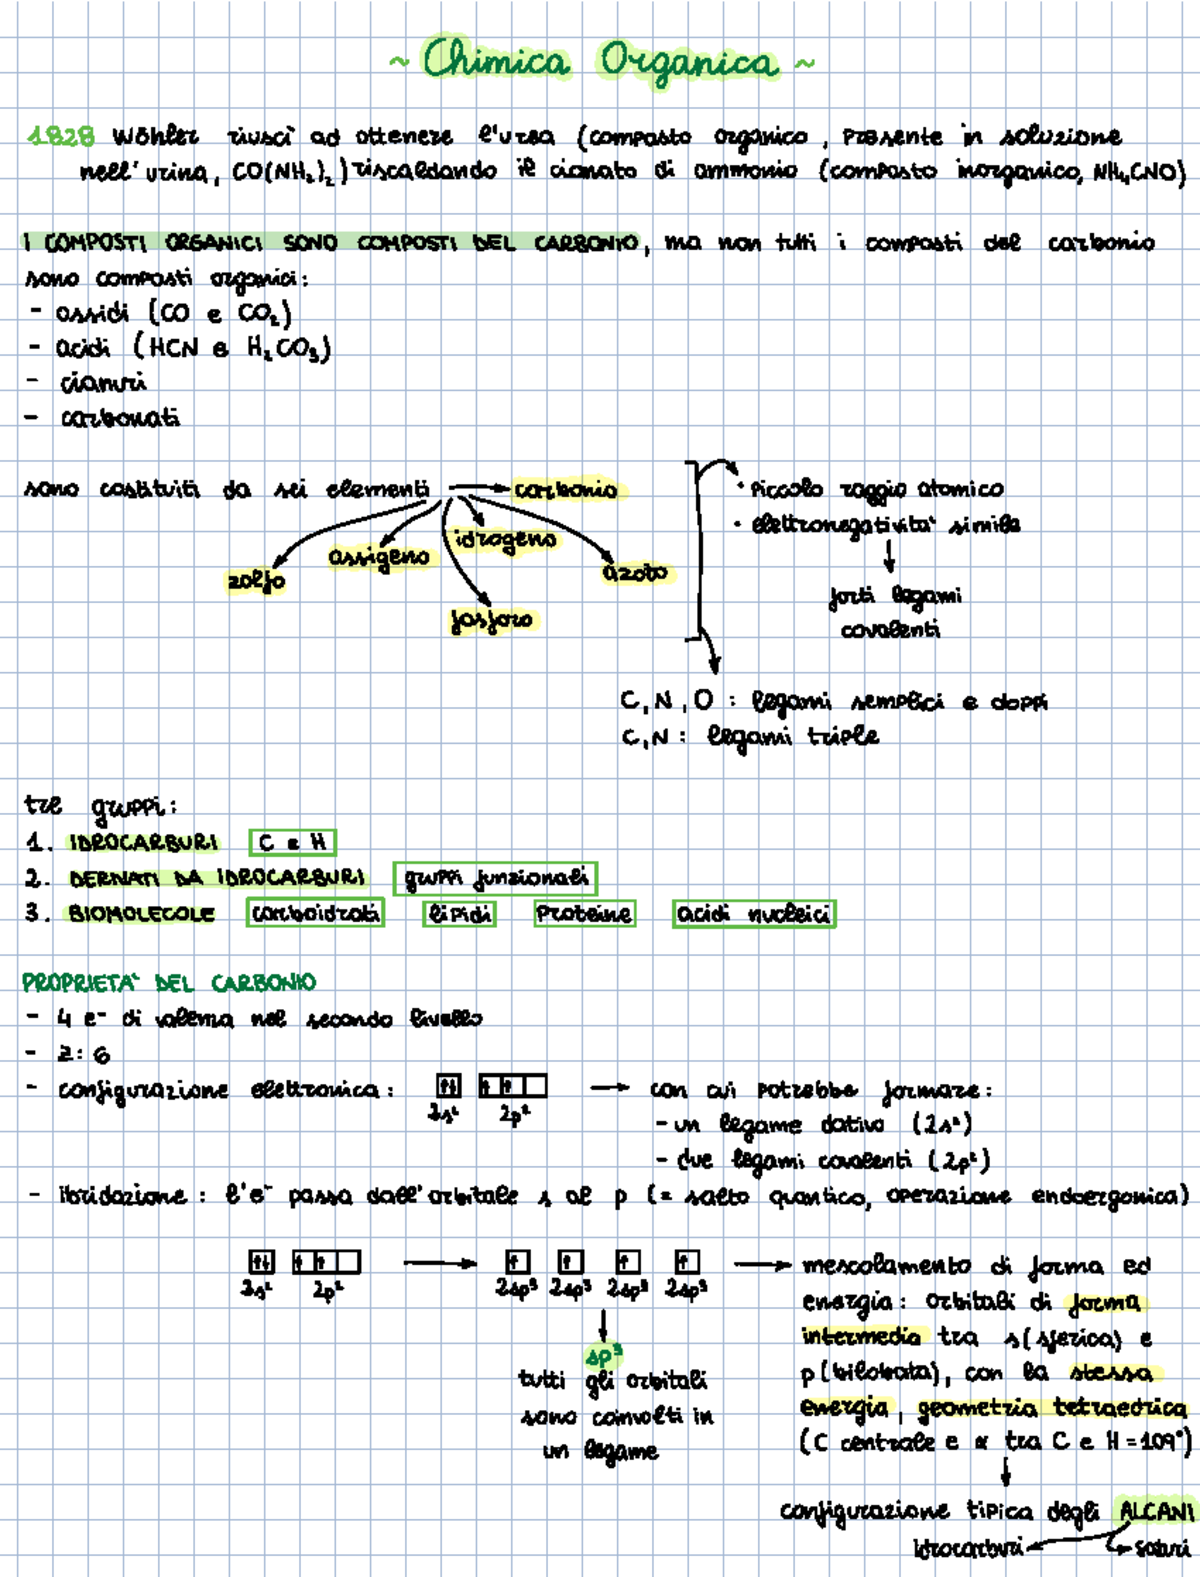 ~ Chimica Organica ~
1828 Wöhler riuscì ad ottenere l'urea (composto organico, presente in soluzione
nell'urina, CO(NH₂)₂) riscaldando il cianato di ammonio (composto inorganico, NH₄CNO)
I COMPOSTI ORGANICI SONO COMPOSTI DEL CARBONIO, ma non tutti i composti del carbonio
sono composti organici:
- ossidi (CO e CO₂)
- acidi (HCN e H₂CO₃)
- cianuri
- carbonati
sono costituiti da sei elementi → carbonio
zolfo
ossigeno
idrogeno
fosforo
azoto
• piccolo raggio atomico
• elettronegatività simile
↓
forti legami
covalenti
C, N, O : legami semplici e doppi
C, N : legami triple
tre gruppi:
1. IDROCARBURI C e H
2. DERIVATI DA IDROCARBURI gruppi funzionali
3. BIOMOLECOLE carboidrati lipidi proteine acidi nucleici
PROPRIETA' DEL CARBONIO
- 4 e⁻ di valenza nel secondo livello
- Z: 6
- configurazione elettronica: ↑↓ ↑ ↑ → con cui potrebbe formare:
2s² 2p²
- un legame dativo (2s²)
- due legami covalenti (2p²)
- ibridazione : l'e⁻ passa dall'orbitale s al p (= salto quantico, operazione endoergonica)
↑↓ ↑ ↑ → ↑ ↑ ↑ ↑
2s² 2p² 2sp³ 2sp³ 2sp³ 2sp³
↓
sp³
tutti gli orbitali
sono coinvolti in
un legame
→ mescolamento di forma ed
energia: orbitali di forma
intermedia tra s (sferica) e
p (bilobata), con la stessa
energia, geometria tetraedrica
(C centrale e α tra C e H = 109°)
↓
configurazione tipica degli ALCANI
idrocarburi ← → saturi